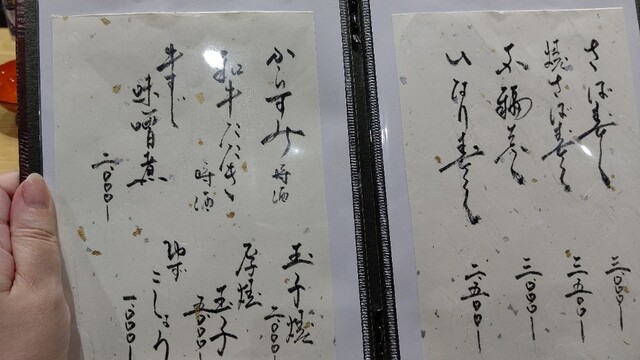 さば寿し 三〇〇〇ー
焼さば寿し 三五〇〇ー
三〇〇〇ー
いなり寿し 二五〇〇ー
からすみ 時価
和牛たたき 時価
牛すじ
味噌煮 二〇〇〇ー
玉子焼 二〇〇〇ー
厚焼
玉子 五〇〇〇ー
ゆず
こしょう 一〇〇〇ー